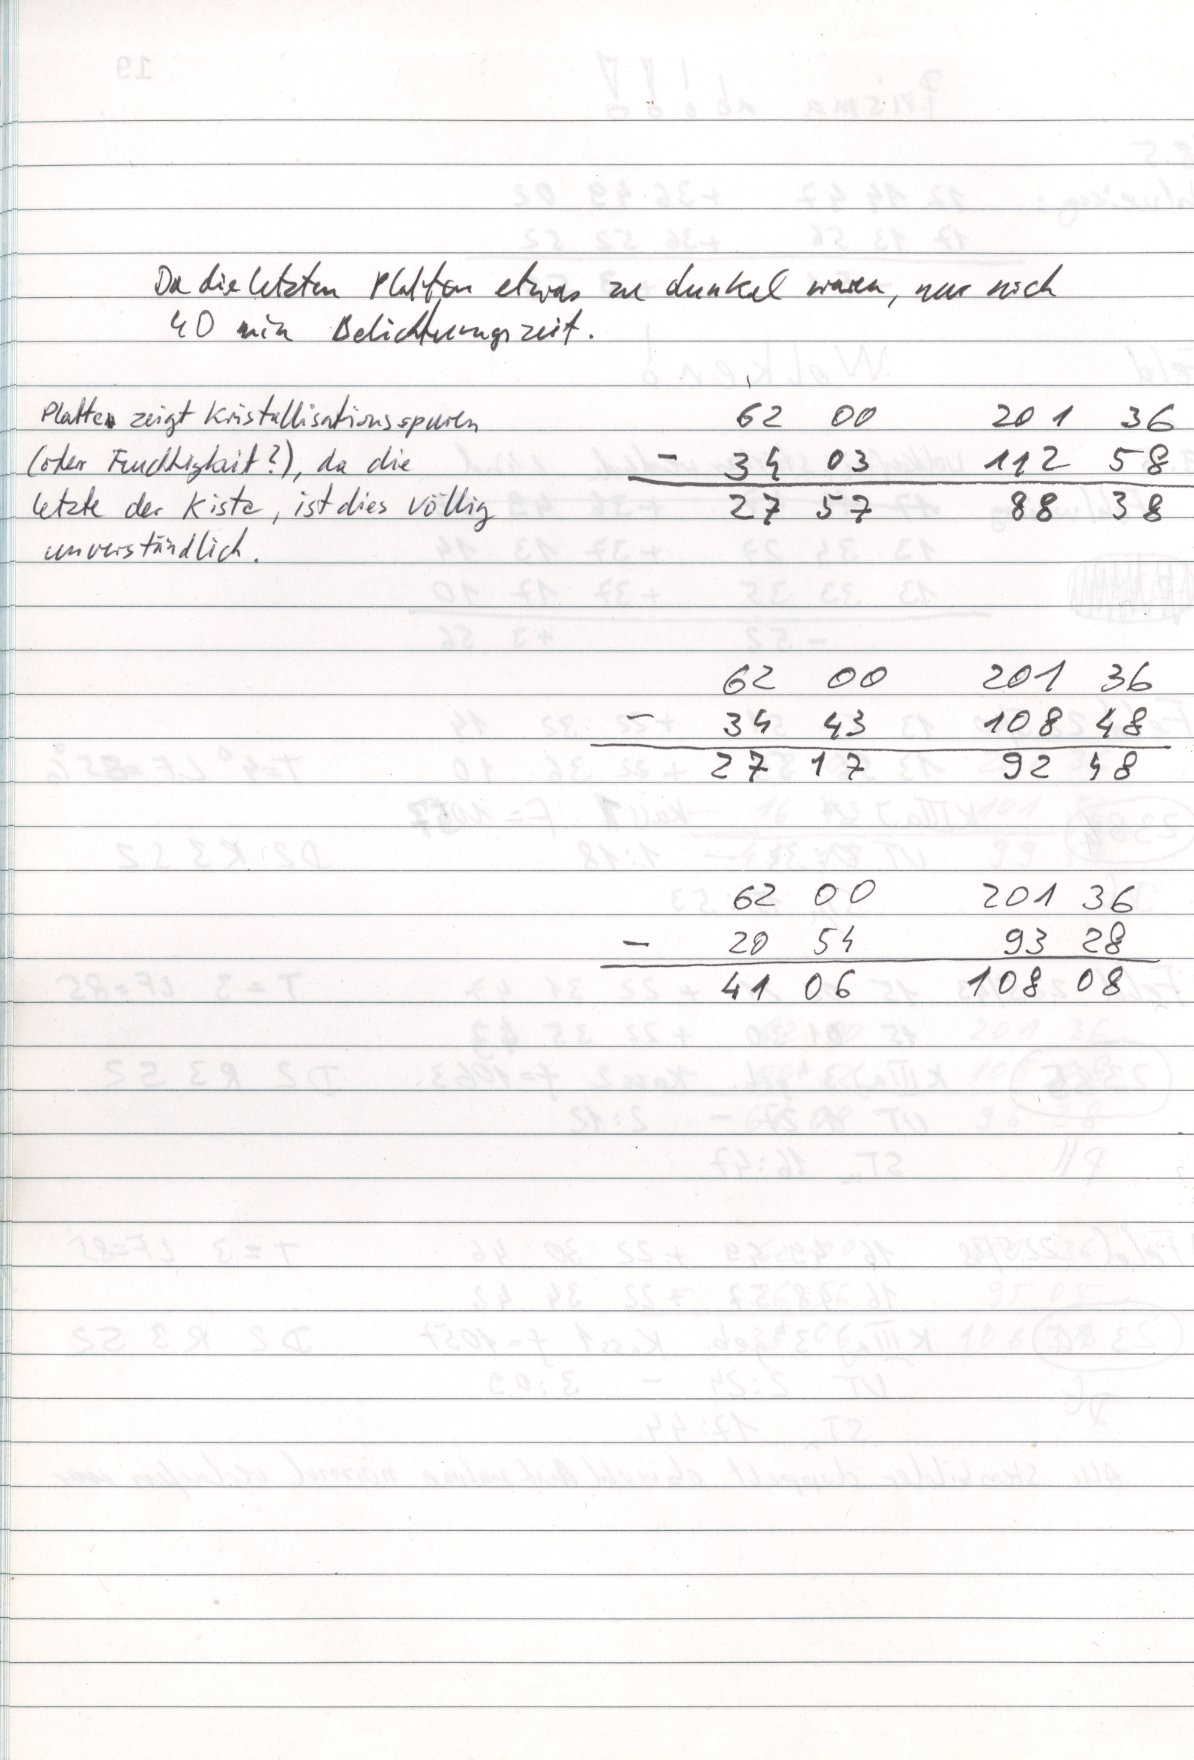 Da die letzten Platten etwas zu dunkel waren, nur noch
40 min Belichtungszeit.
Platte zeigt Kristallisationsspuren
(oder Feuchtigkeit?), da die
letzte der Kiste, ist dies völlig
unverständlich.
62 00 201 36
- 34 03 112 58
27 57 88 38
62 00 201 36
- 34 43 108 48
27 17 92 48
62 00 201 36
- 20 54 93 28
41 06 108 08